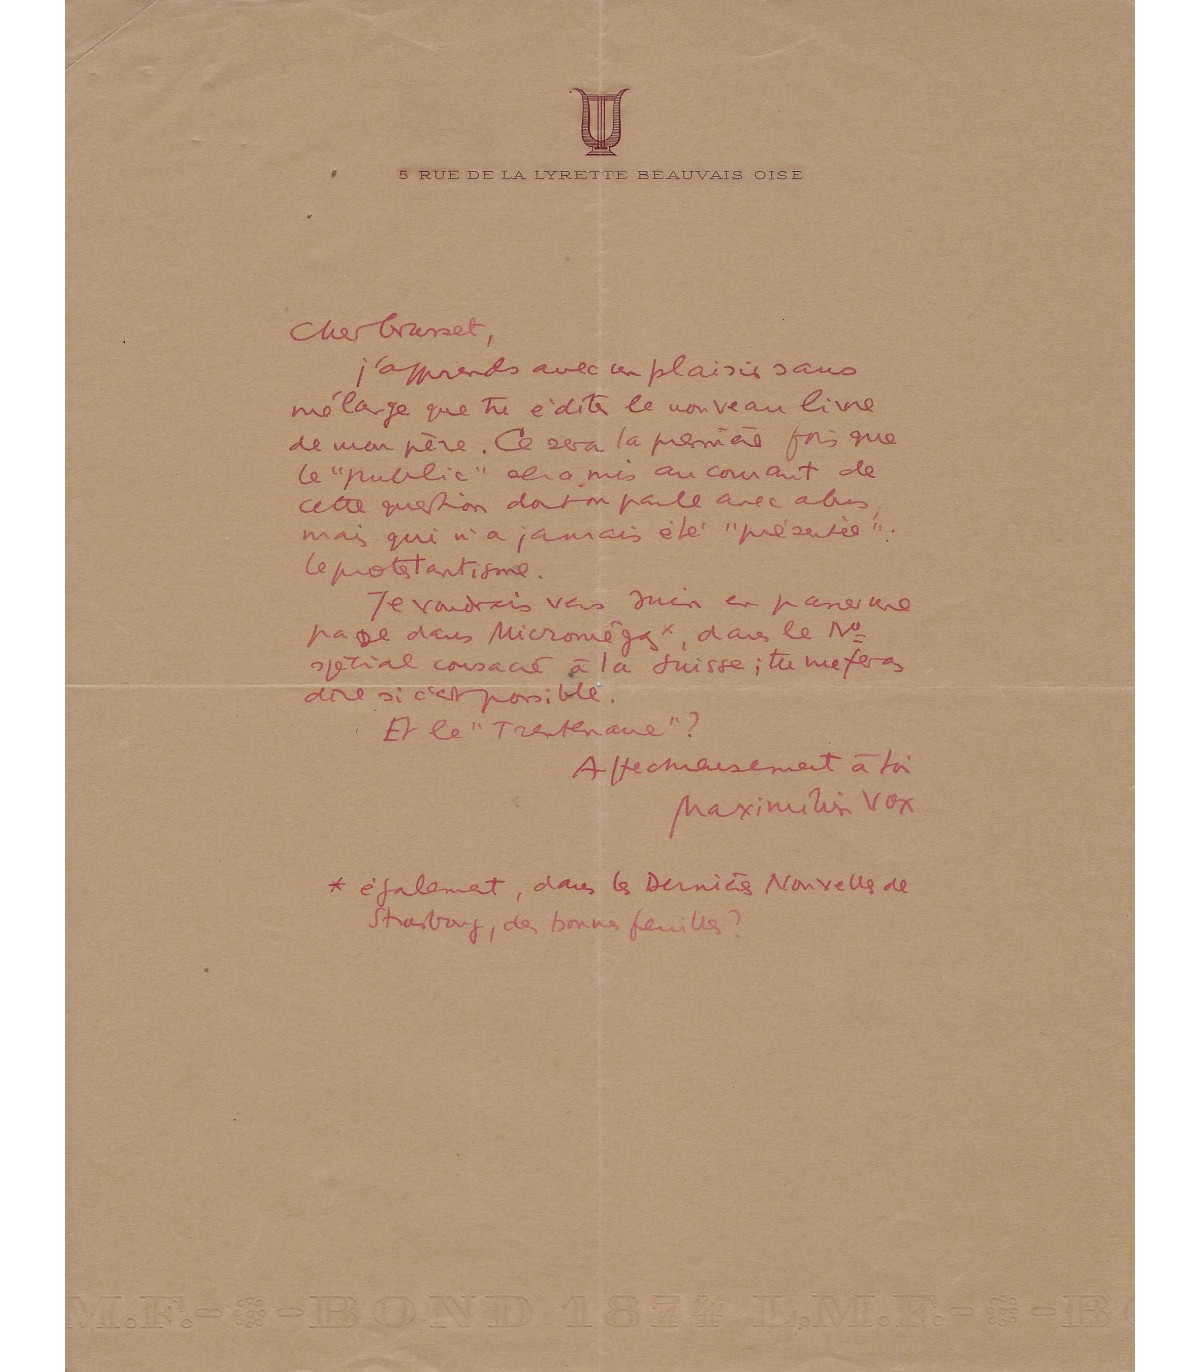 5 RUE DE LA LYRETTE BEAUVAIS OISE
Cher Grasset,
j'apprends avec un plaisir sans
mélange que tu édites le nouveau livre
de mon père. Ce sera la première fois que
le "public" sera mis au courant de
cette question dont on parle avec abus,
mais qui n'a jamais été "présentée":
le protestantisme.
Je voudrais vers Juin en passer une
page dans Micromégas*, dans le No
spécial consacré à la Suisse; tu me feras
dire si c'est possible.
Et le "Trentenaire"?
Affectueusement à toi
Maximilien Vox
* également, dans les Dernières Nouvelles de
Strasbourg, des bonnes feuilles?
M.F.-BOND 1874 L.M.F.-BO